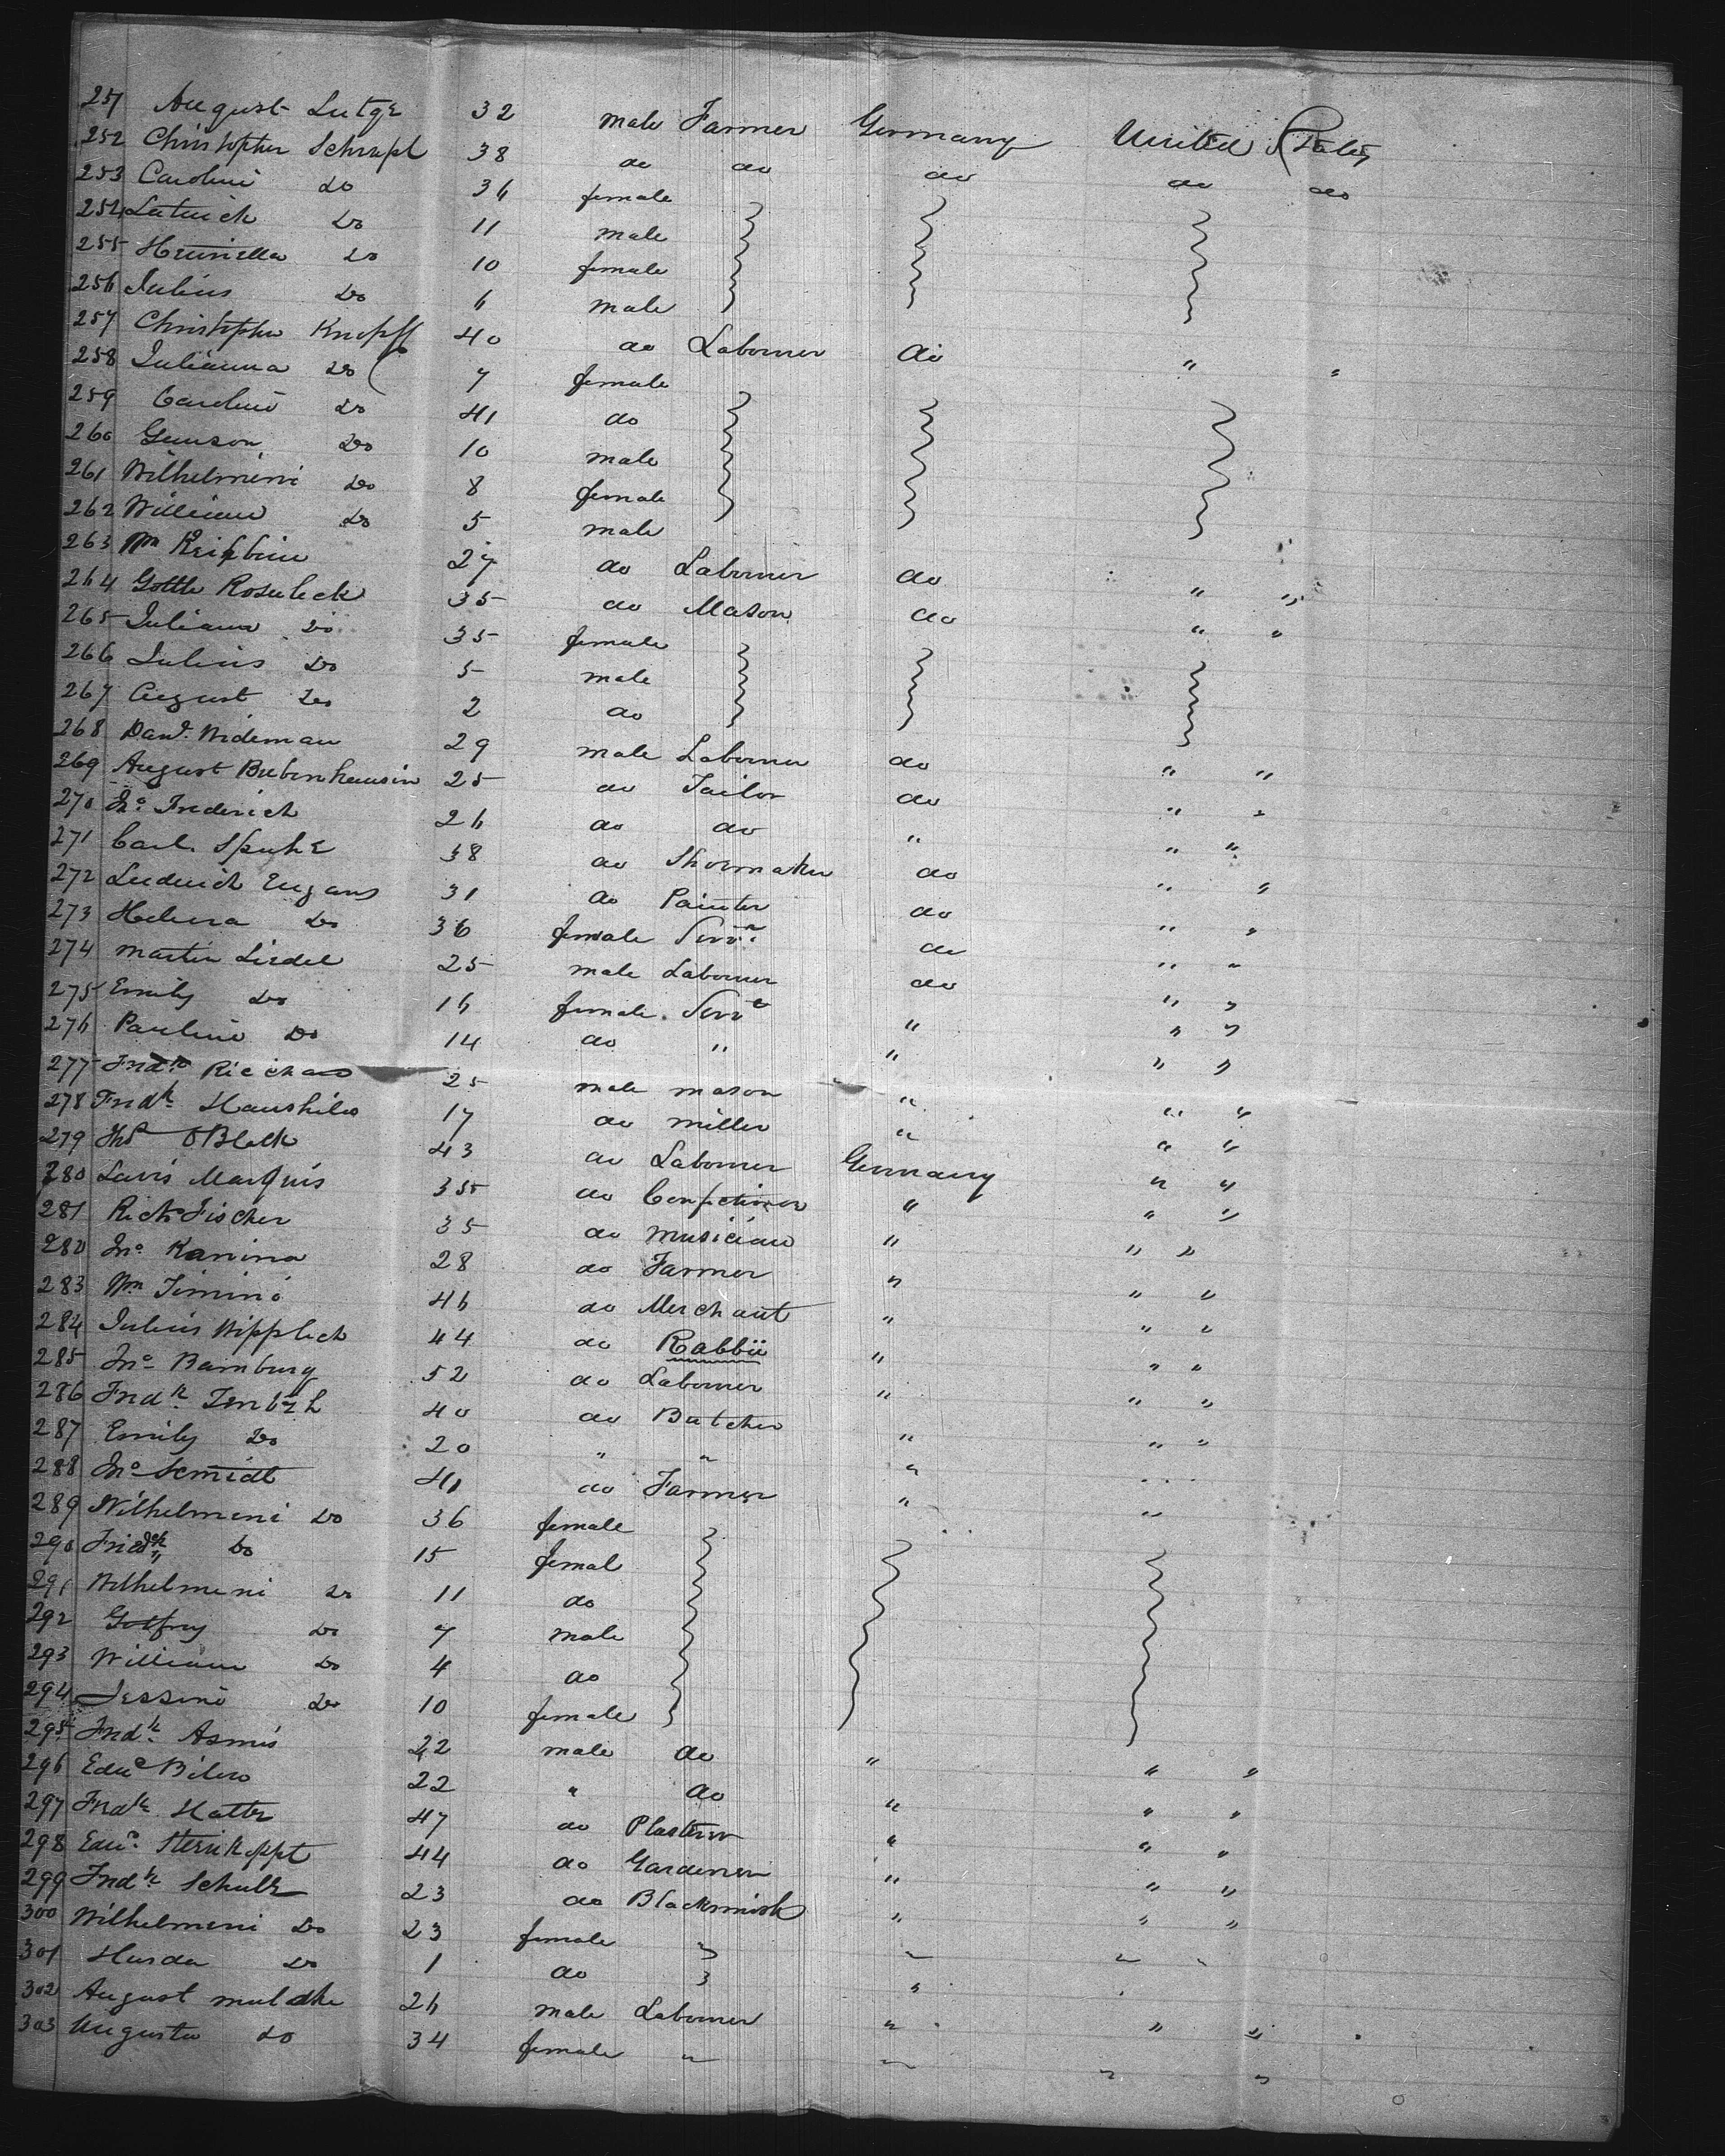 251 August Lutge 32 male Farmer Germany United States
252 Christopher Schrapl 38 do do do do do
253 Carolini do 36 female
254 Latwick do 11 male
255 Henriella do 10 female
256 Julius do 6 male
257 Christopher Knopff 40 do Labourer do " "
258 Julianna do 7 female
259 Carolini do 41 do
260 do 10 male
261 Wilhelmini do 8 female
262 William do 5 male
263 Wm 27 do Labourer do " "
264 Gottle Rosuleck 35 do Mason do " "
265 Juliana do 35 female
266 Julius do 5 male
267 August do 2 do
268 Danl. Wideman 29 male Labourer do " "
269 August Bubenhausin 25 do Tailor do " "
270 Jno. Frederick 26 do do " " "
271 Carl Spuhe 38 do Shoemaker do " "
272 Luderich Eugans 31 do Painter do " "
273 Helena do 36 female Servt do " "
274 Martin Lirdel 25 male Labourer do " "
275 Emily do 16 female Servt " " "
276 Paulini do 14 do " " " "
277 Fredk 25 male mason " " "
278 Fredk. 17 do miller " " "
279 OBlack 43 do Labourer Germany " "
280 Lavis Marquis 35 do Confectioner " " "
281 Richd Fischer 35 do Musician " " "
282 Jno. Kanina 28 do Farmer " " "
283 Wm Timini 46 do Merchant " " "
284 Julius Wipplich 44 do Rabbii " " "
285 Jno. Bamburg 52 do Labourer " " "
286 Fredk. 40 do Butcher " " "
287 Emily do 20 " " "
288 Jno Scmidt 41 do Farmer " "
289 Wilhelmini do 36 female
290 Friedk do 15 femal
291 Wilhelmeni do 11 do
292 Gotfrey do 7 male
293 William do 4 do
294 Jessini do 10 female
295 Fredk. Asmis 22 male do " " "
296 Edwd 22 " do " " "
297 Fredk Hatte 47 do Plasterer " " "
298 Edwd. 44 do Gardener " " "
299 Fredk. Schultz 23 do Blacksmith " " "
300 Wilhelmini do 23 female " " "
301 Hurda do 1 do "
302 August muldke 26 male Labourer " " "
303 Augusta do 34 female " " " "